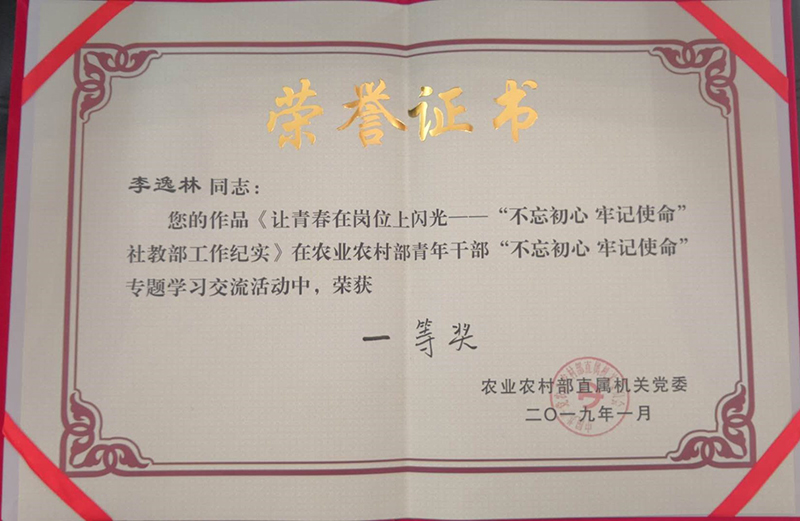 荣誉证书
李逸林 同志：
您的作品《让青春在岗位上闪光——“不忘初心 牢记使命”
社教部工作纪实》在农业农村部青年干部“不忘初心 牢记使命”
专题学习交流活动中，荣获
一等奖
农业农村部直属机关党委
二〇一九年一月